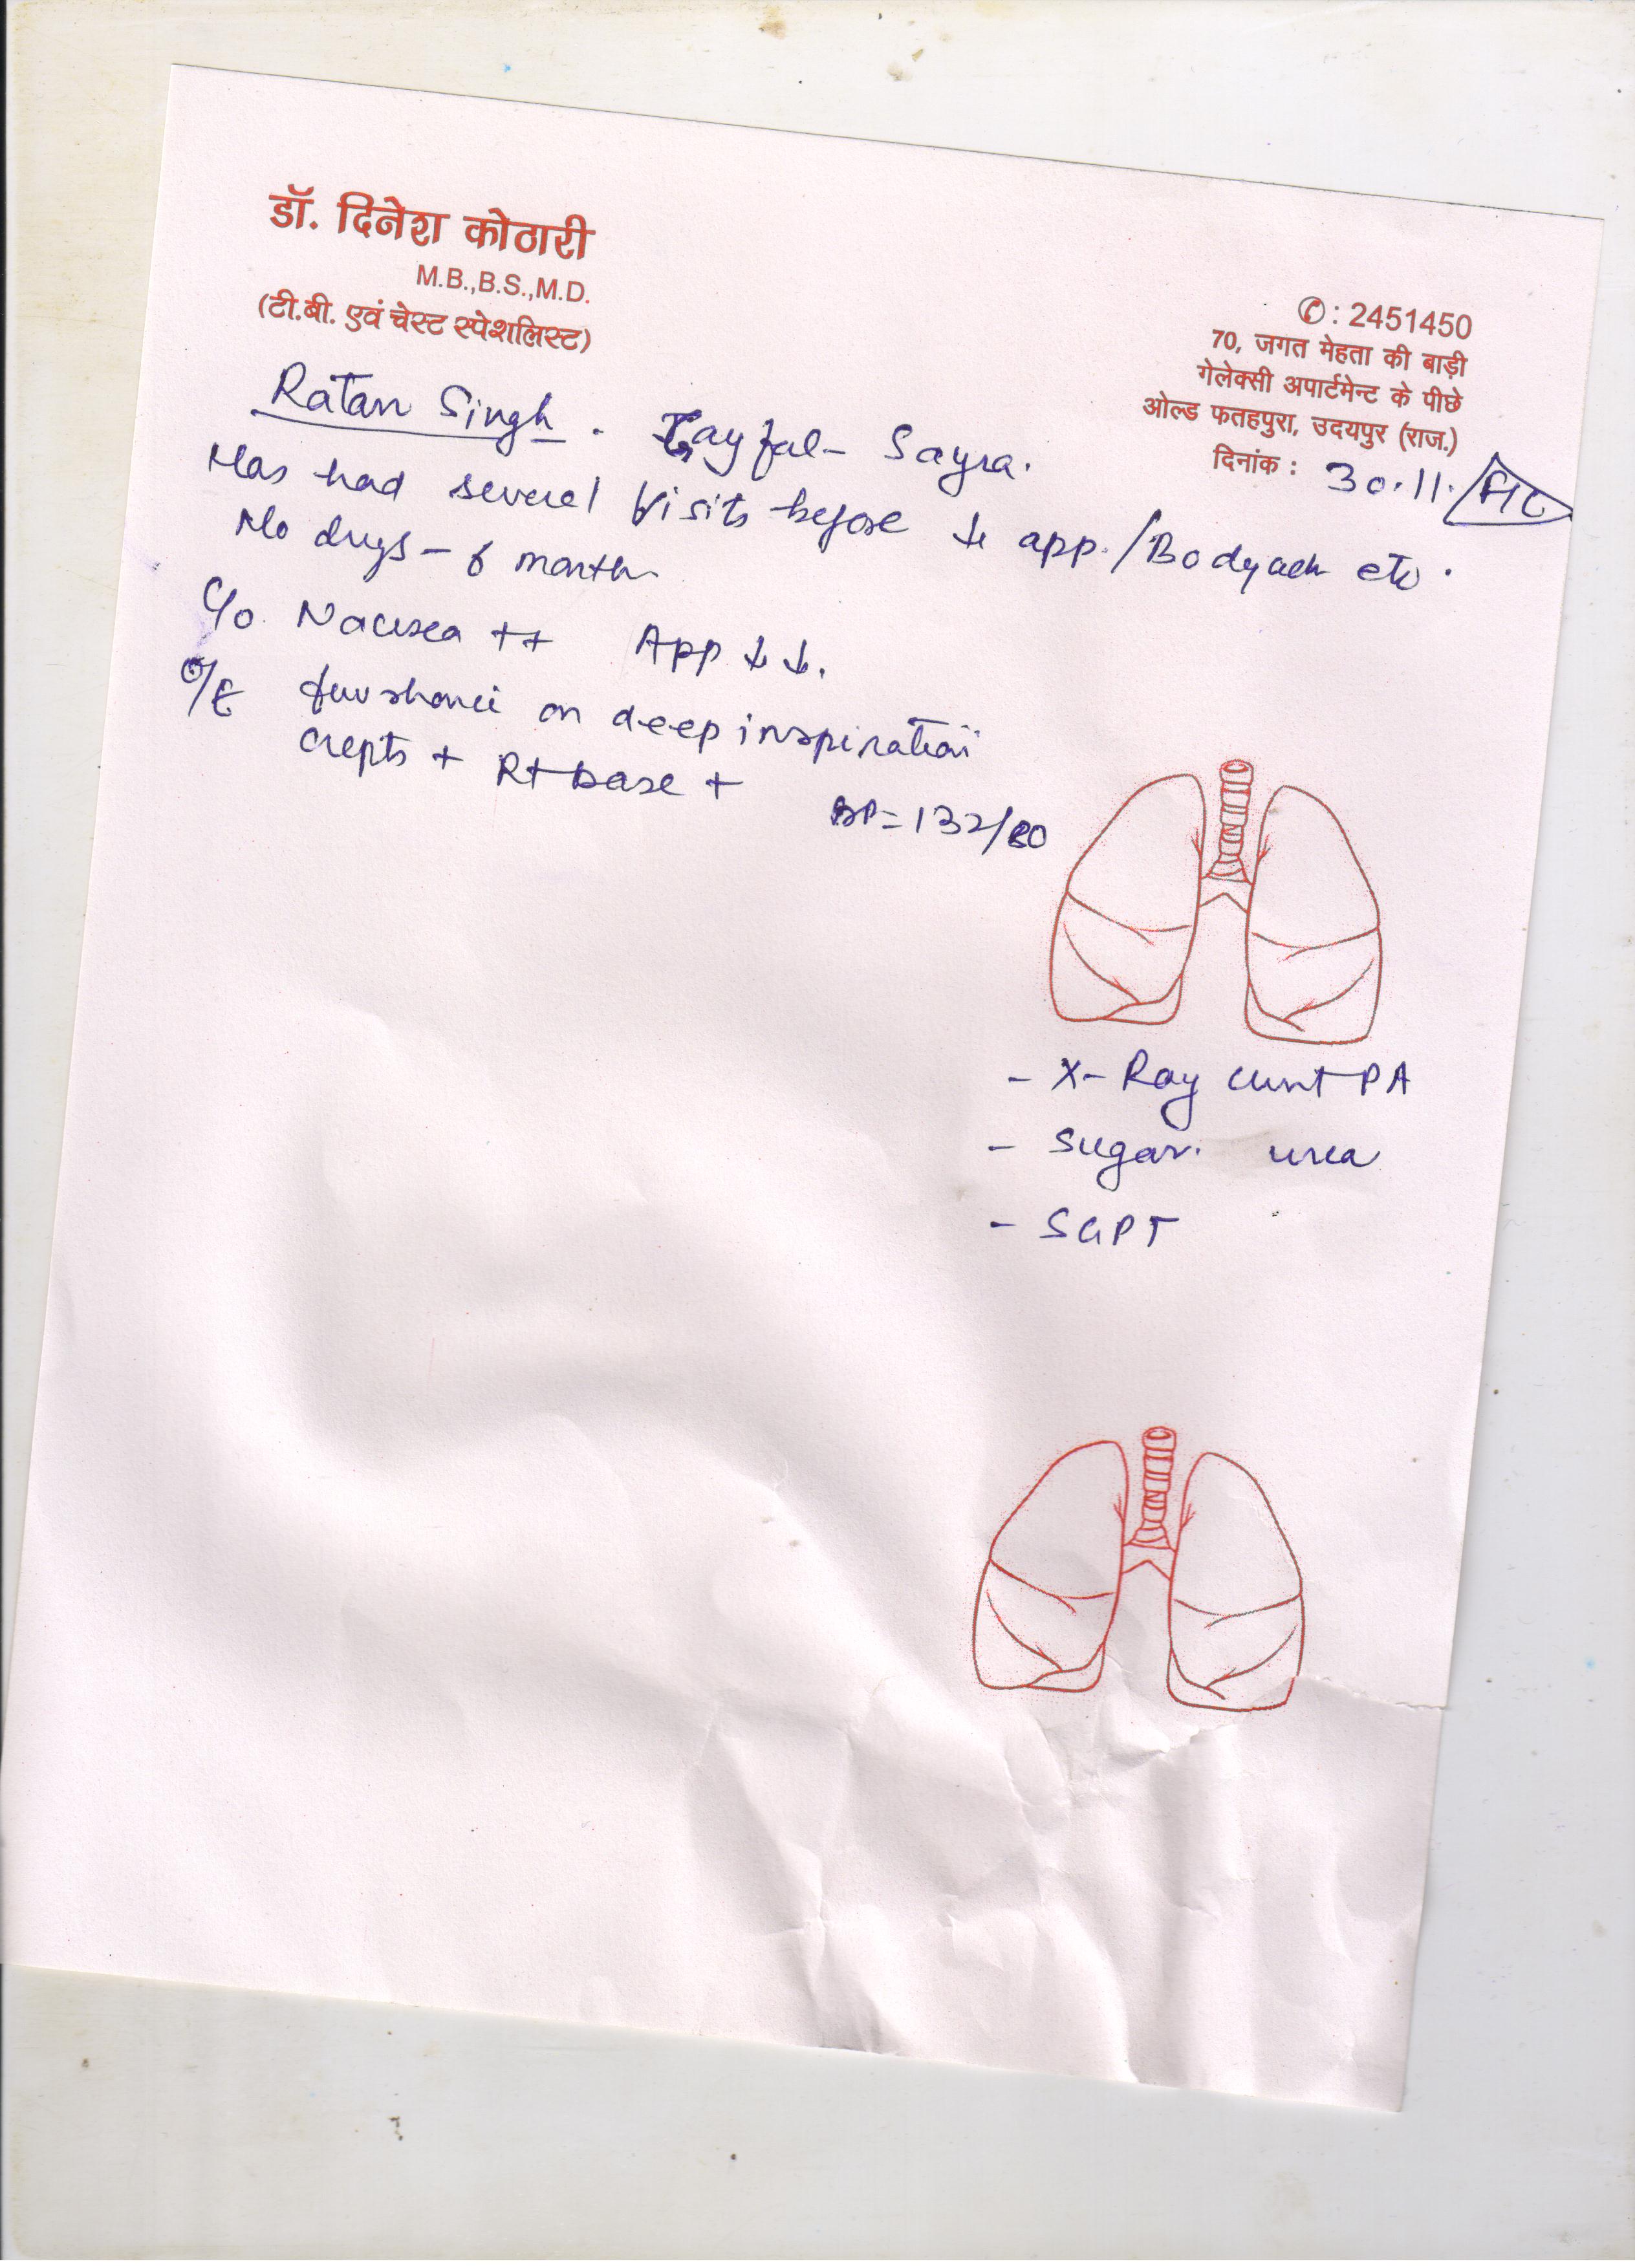 डॉ. दिनेश कोठारी
M.B.,B.S.,M.D.
(टी.बी. एवं चेस्ट स्पेशलिस्ट)
✆ : 2451450
70, जगत मेहता की बाड़ी
गेलेक्सी अपार्टमेन्ट के पीछे
ओल्ड फतहपुरा, उदयपुर (राज.)
दिनांक : 30.11.
Ratan Singh . - Sayra.
Has had several Visits before ↓ app. / Bodyach etc.
No drugs - 6 month
C/o Nausea ++ App ↓ ↓.
O/E few rhonci on deep inspiration
crepts + Rt base +
BP = 132/80
- X-Ray chest PA
- Sugar. urea
- SGPT